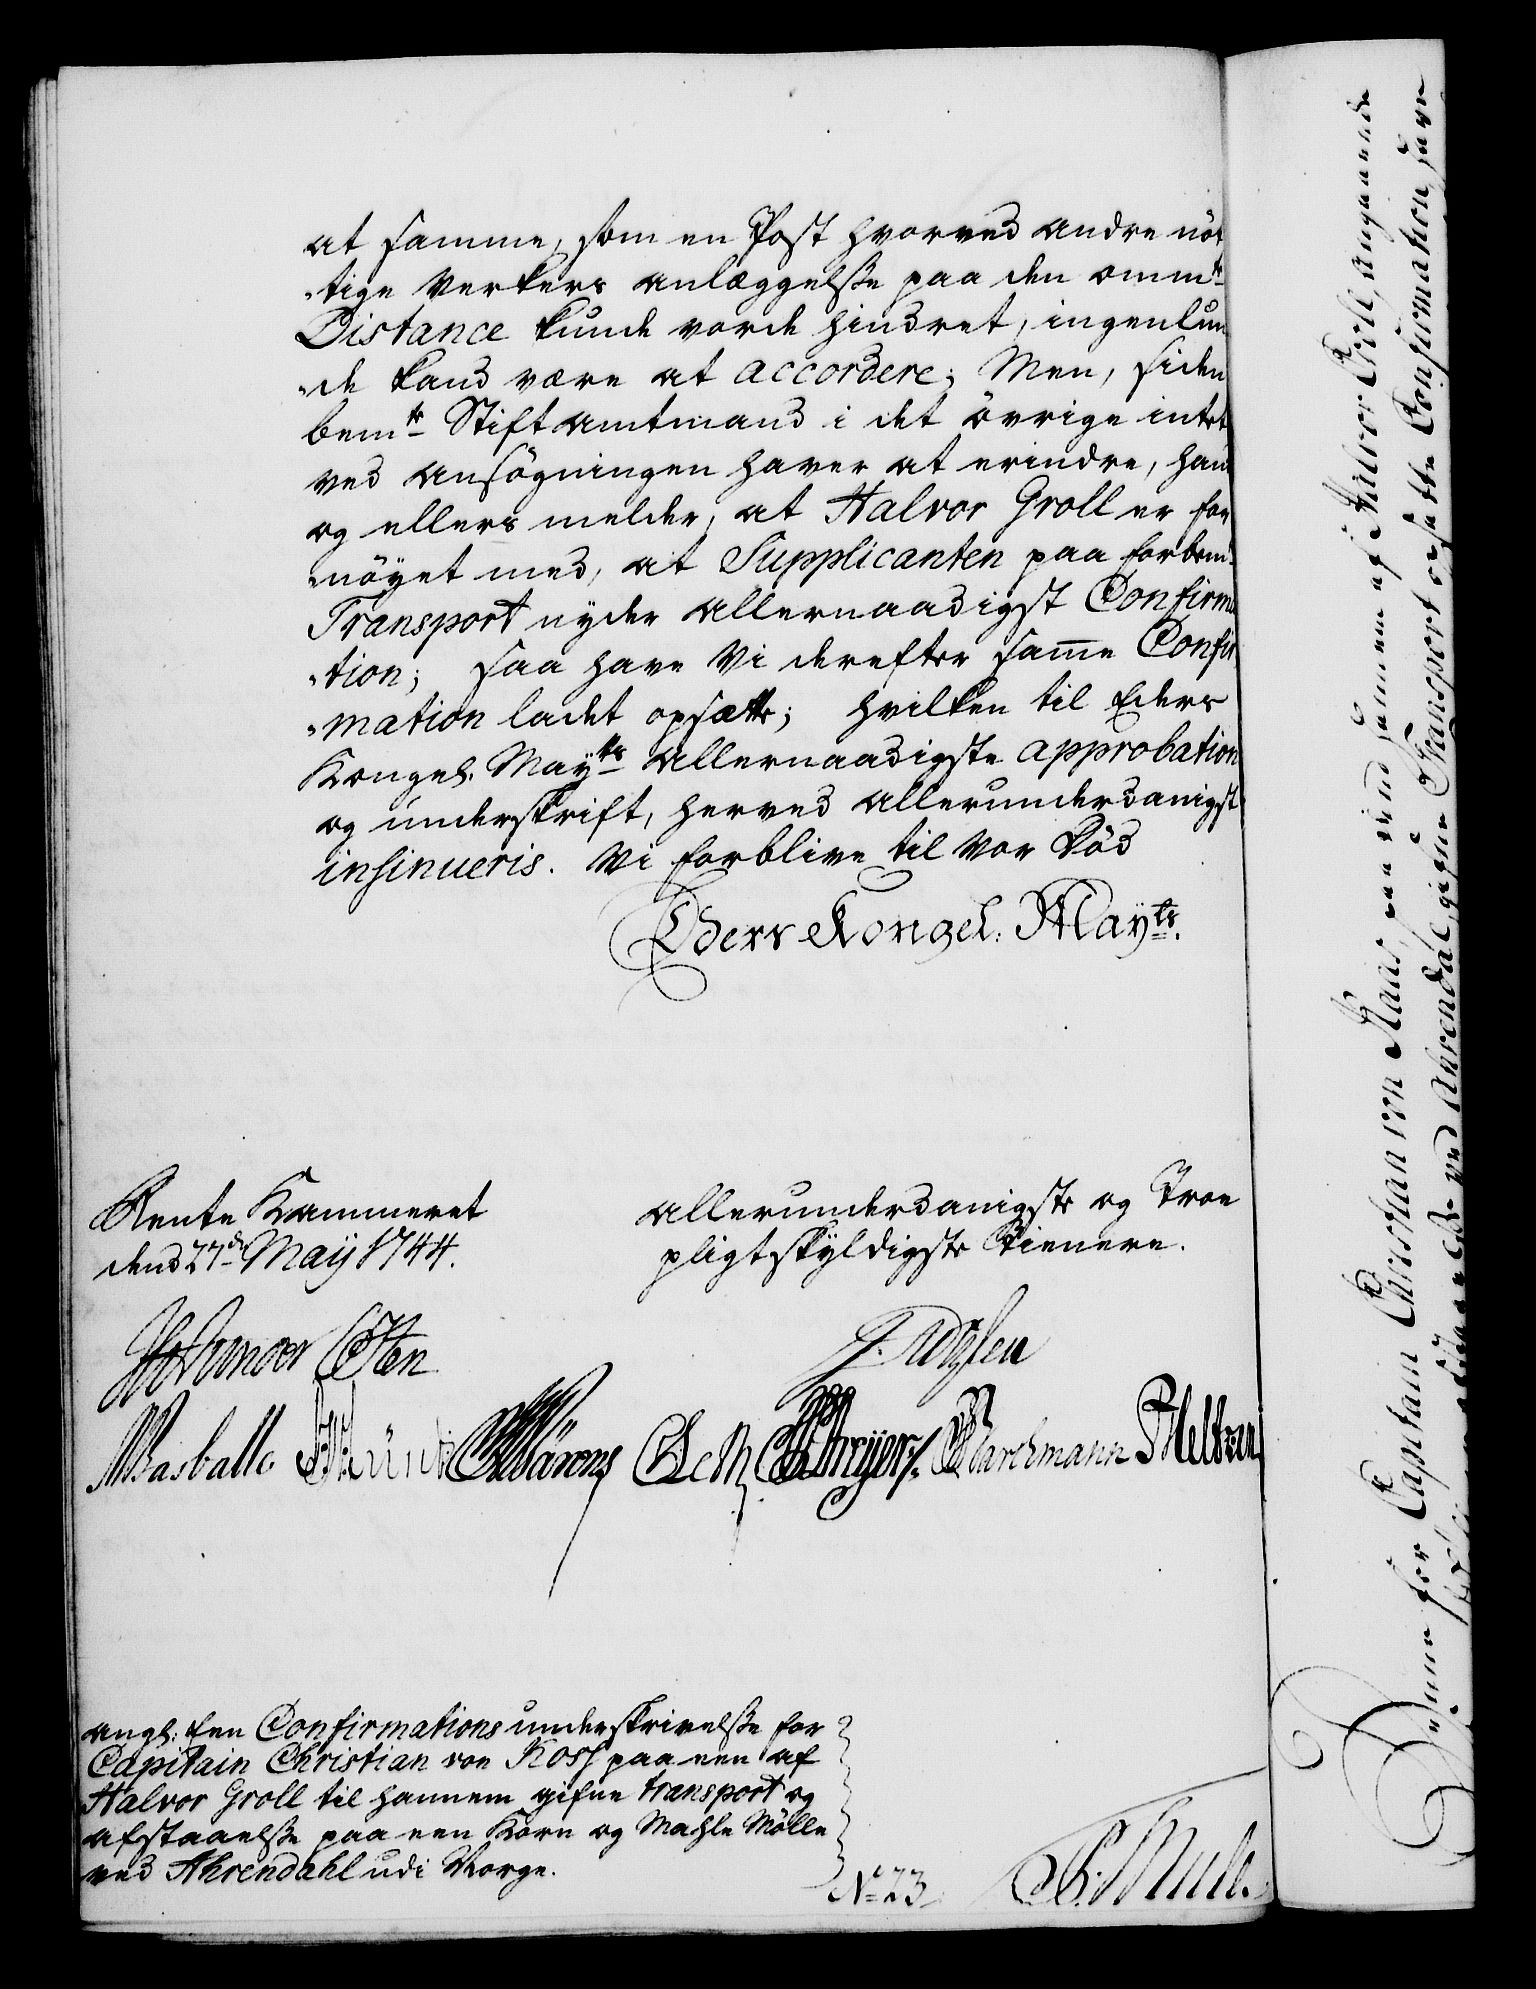 at samme, som en Post hvorved andre nöt
-tige Verkers anlæggelße paa den omm.te
Distance kunde vorde hindret, ingenlun
-de kand være at accordere; Men, siden
bem.te Stiftamtmand i det övrige intet
ved ansögningen haver at erindre, hand
og ellers melder, at Halvor Groll er for
nöyet med, at Supplicanten paa forbem.te
Transport nyder allernaadigst Confirma
-tion; saa have Vi derefter samme Confir
-mation ladet opsætte; hvilken til Eders
Kongel. May.ts allernaadigste approbation
og underskrift, herved allerunderdanigst
insinueris. Vi forblive til vor Död
Eders Kongel: May.ts.
Rente Kammeret
dend 27.de May 1744.
allerunderdanigste og Troe
pligtskyldigste Tienere.
Basballe Barchmann Meltzen
angl: een Confirmations underskrivelße for
Capitain Christian von Koss paa een af
Halvor Groll til hannem gifne transport og
afstaaelße paa een Korn og Mahle Mölle
ved Ahrendahl udi Norge.
No 23.
for Capitain Christian von Kaas, paa eind hannem af Halvor Groll, angaaende
ved Ahrendal, gifne Transport opsatte Confirmation, have